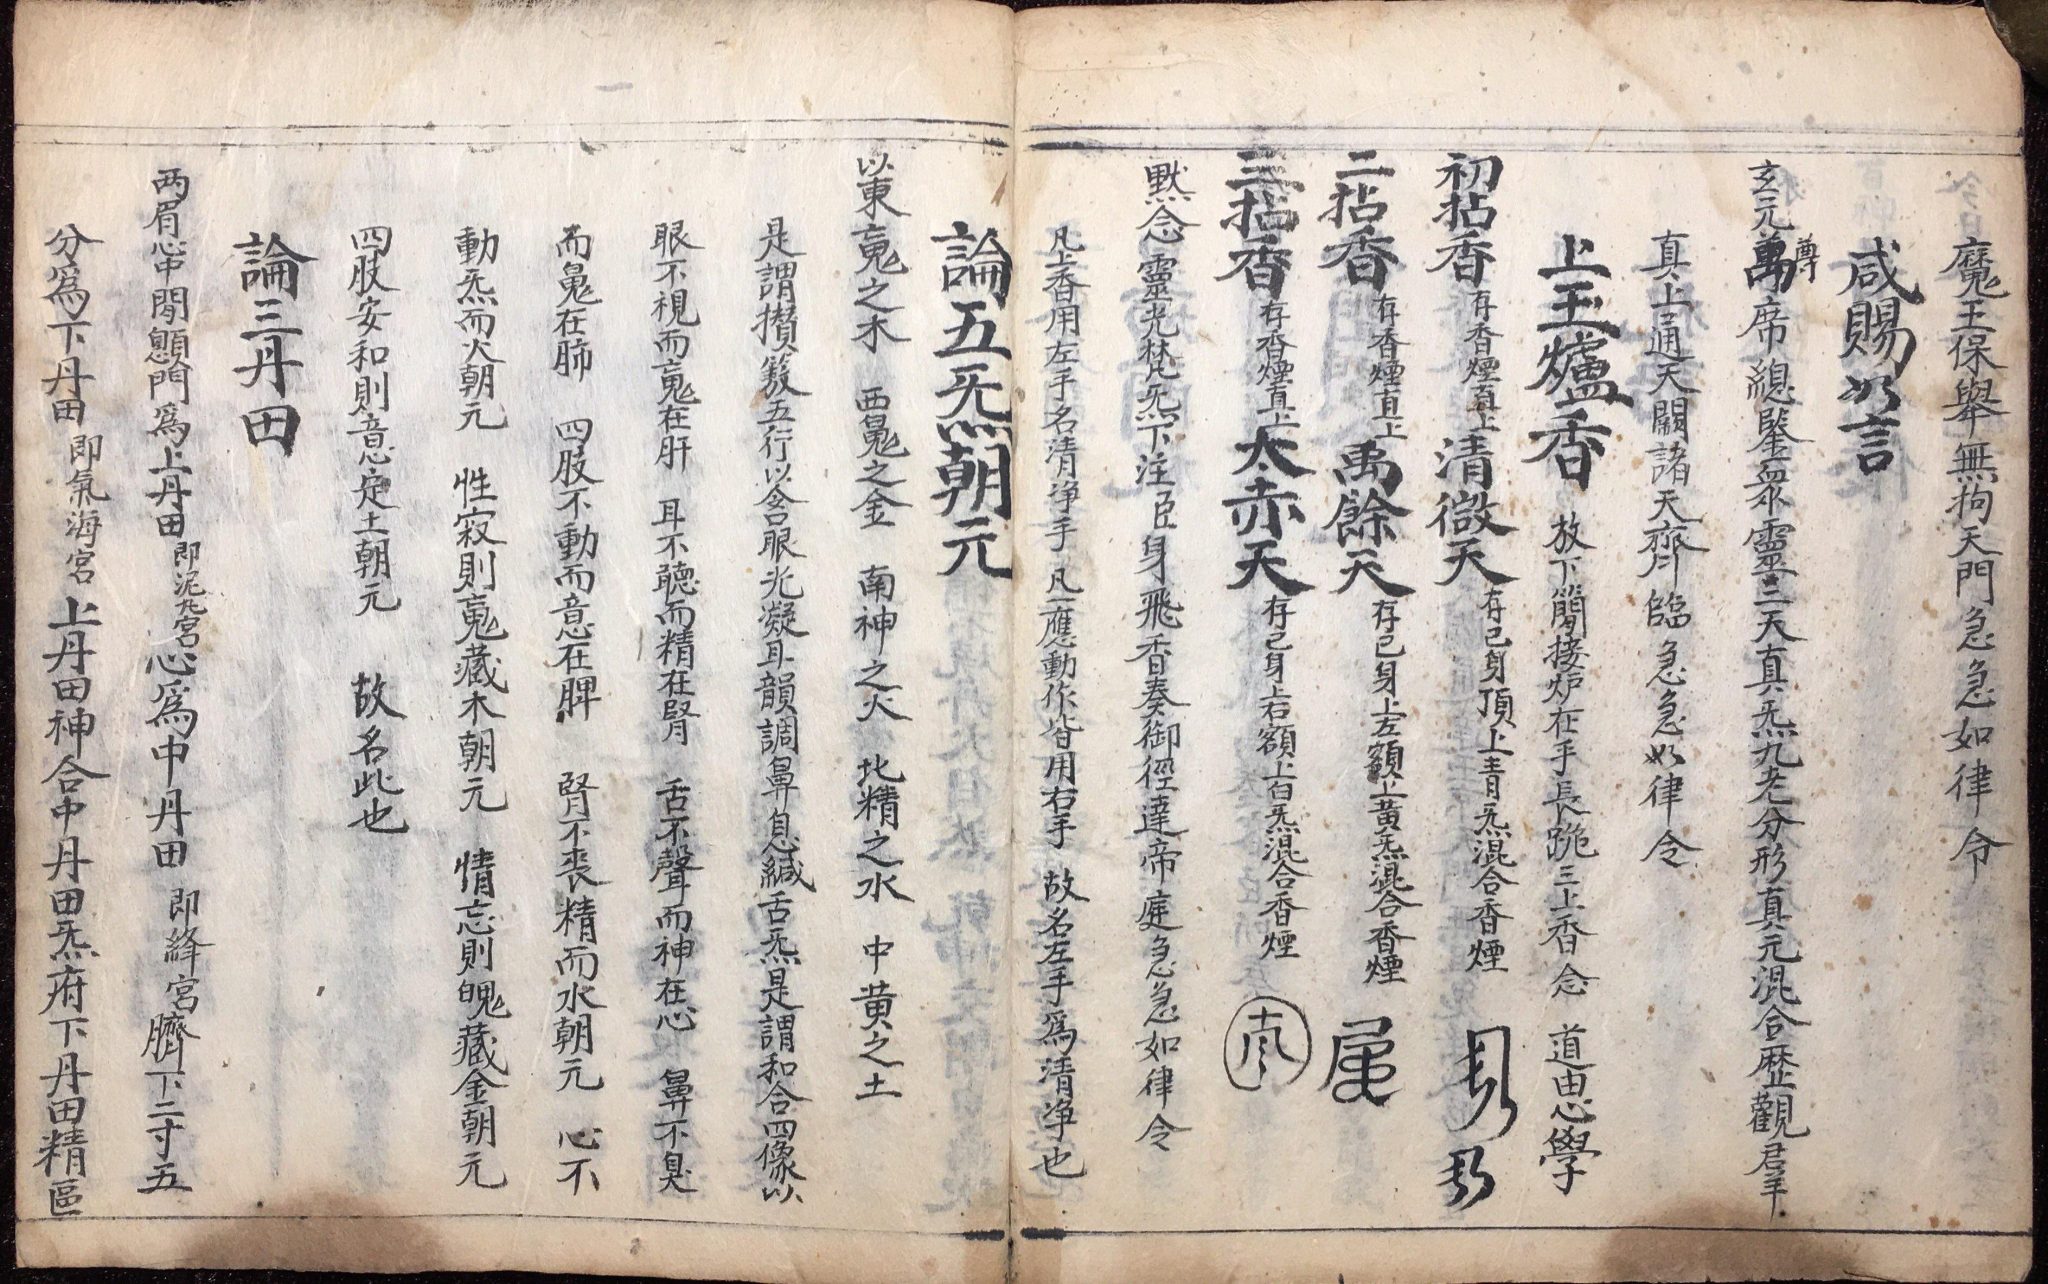 魔王保舉無拘天門急急如律令
咸賜如言
玄元萬尊席總鑒衆靈三天真炁九老分形真元混合歷觀羣
真上通天闕諸天齊臨急急如律令
上玉爐香 放下簡接炉在手長跪三上香念 道由心學
初拈香 存香煙直上 清微天 存已身頂上青炁混合香煙
二拈香 存香煙直上 禹餘天 存已身上左額上黃炁混合香煙
三拈香 存香煙直上 太赤天 存已身上右額上白炁混合香煙
默念 靈光梵炁下注臣身飛香奏御徑達帝庭急急如律令
凡上香用左手名清净手凡一應動作皆用右手 故名左手爲清净也
論五炁朝元
以東䰟之木 西䰟之金 南神之火 北精之水 中黄之土
是謂攅簇五行以含眼光凝耳韻調鼻息緘舌炁是謂和合四像以
眼不視而䰟在肝 耳不聽而精在腎 舌不聲而神在心 鼻不臭
而䰟在肺 四肢不動而意在脾 腎不丧精而水朝元 心不
動炁而火朝元 性寂則䰟藏木朝元 情忘則魄藏金朝元
四肢安和則意定土朝元 故名此也
論三丹田
两眉心中間顖門爲上丹田 即泥丸宮 心爲中丹田 即絳宮 臍下二寸五
分爲下丹田 即氣海宮 上丹田神合中丹田炁府下丹田精區